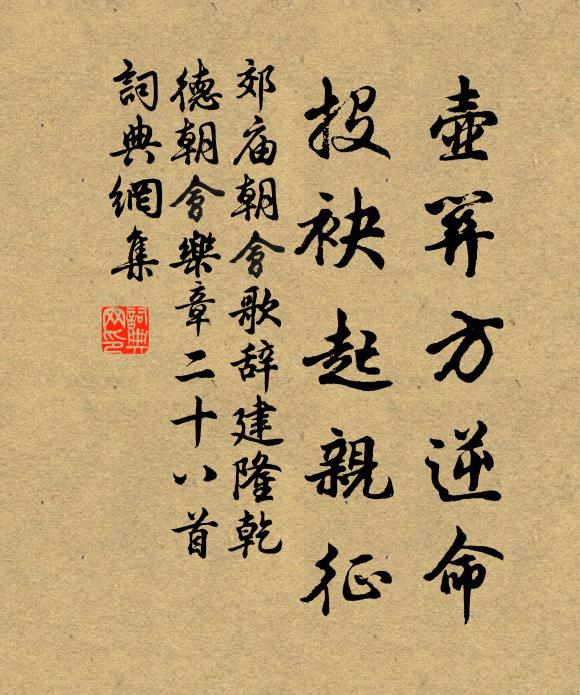 壺關方逆命
投袂起親征
郊庙朝會歌辞建隆乾
德朝會樂章二十八首
詞典網集
詞典网印